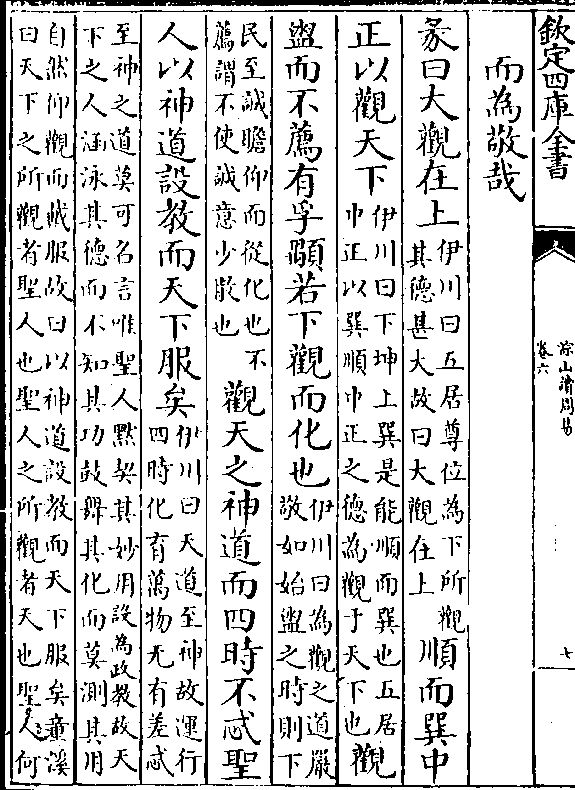 欽定四庫全書
涂山讀周易
卷六
七
而為敬哉
彖曰大觀在上伊川曰五居尊位為下所觀其德甚大故曰大觀在上順而巽中
正以觀天下伊川曰下坤上巽是能順而巽也五居中正以巽順中正之德為觀于天下也觀
盥而不薦有孚顒若下觀而化也伊川曰為觀之道嚴敬如始盥之時則下
民至誠瞻仰而從化也不薦謂不使誠意少散也觀天之神道而四時不忒聖
人以神道設教而天下服矣伊川曰天道至神故運行四時化育萬物无有差忒
至神之道莫可名言唯聖人默契其妙用設為政教故天
下之人涵泳其德而不知其功鼓舞其化而莫測其用
自然仰觀而戴服故曰以神道設教而天下服矣童溪
曰天下之所觀者聖人也聖人之所觀者天也聖人何